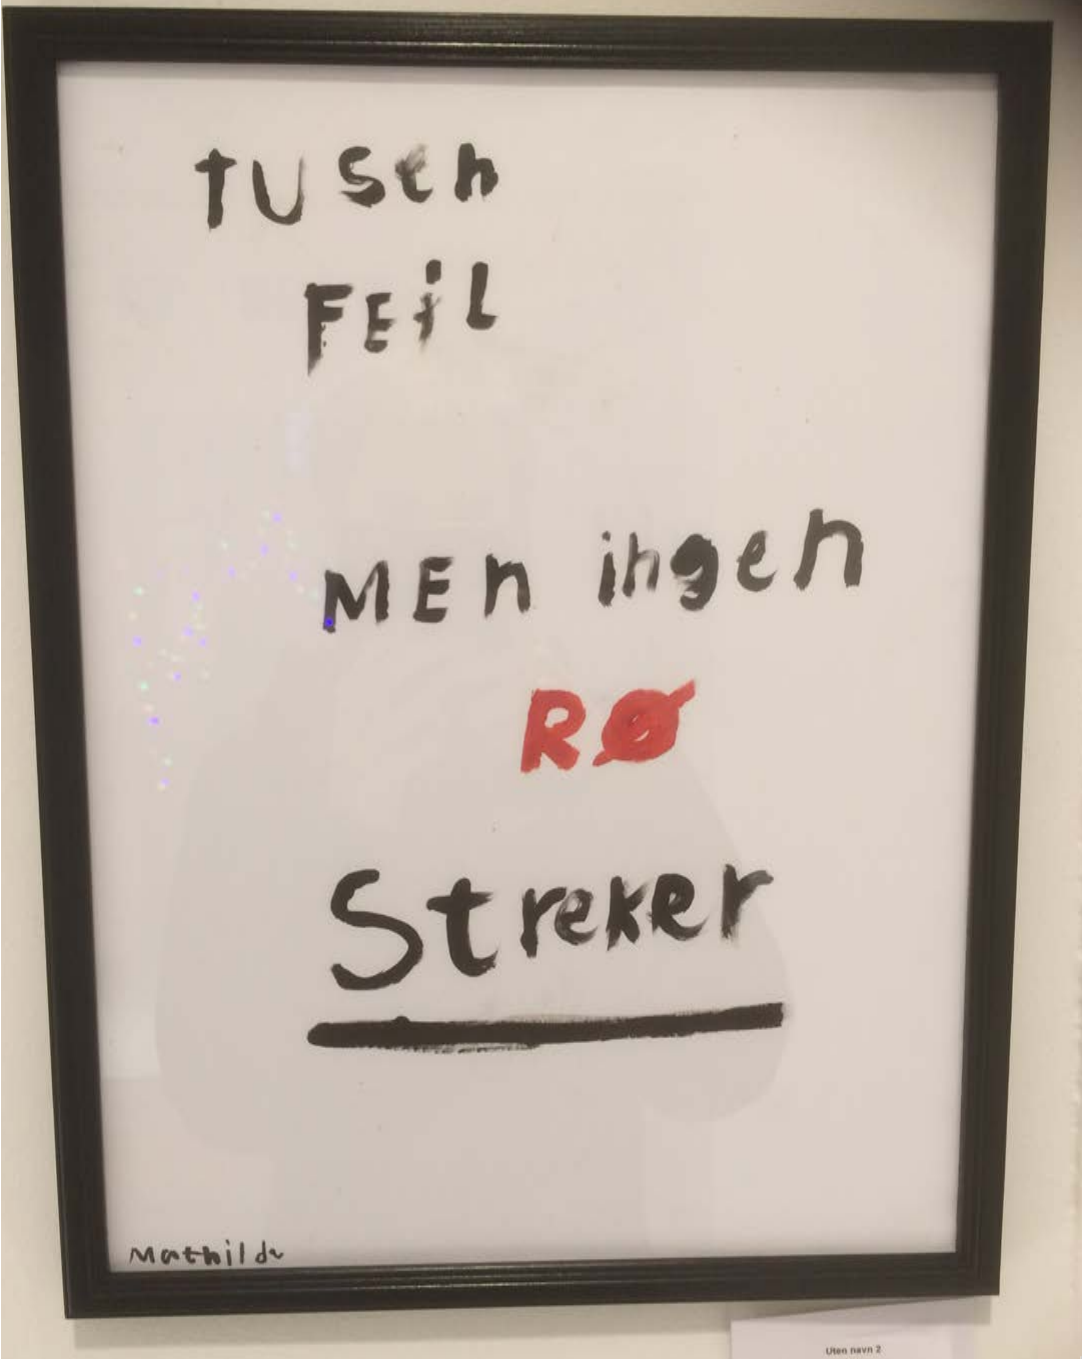 TUSen
FEiL
MEn ingen
RØ
Streker
Mathilde
Uten navn 2